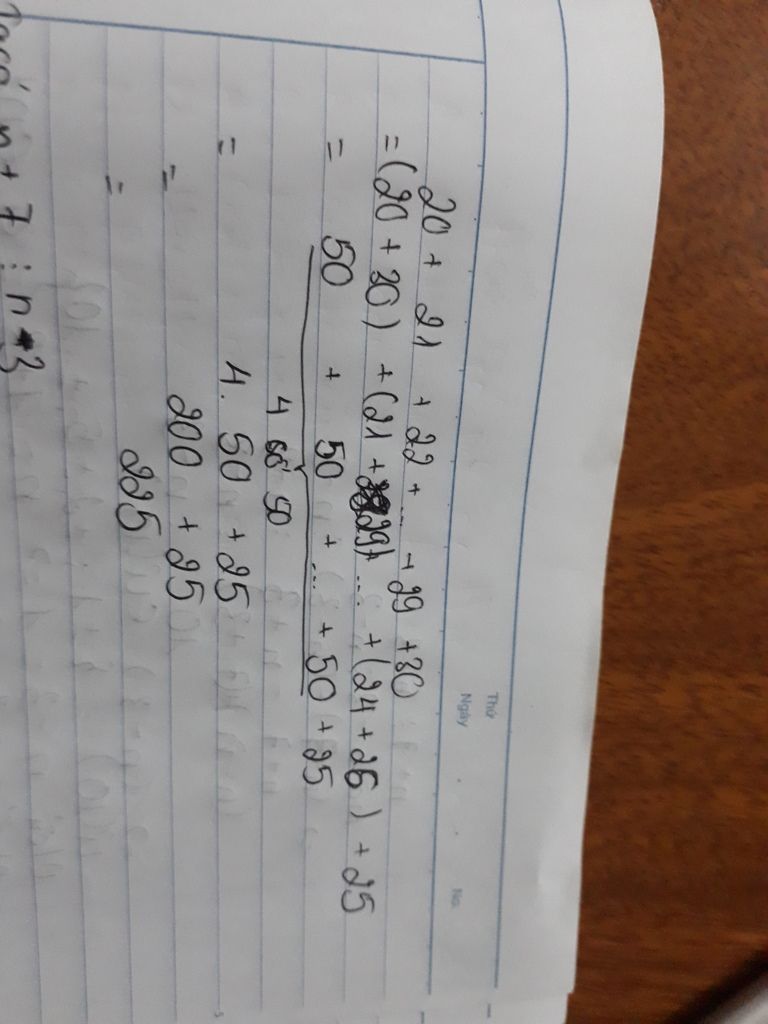 Thứ
Ngày No.
20 + 21 + 22 + ... + 29 + 30
= (20 + 30) + (21 + 29) + ... + (24 + 26) + 25
= 50 + 50 + ... + 50 + 25
4 số 50
= 4. 50 + 25
= 200 + 25
= 225
n + 7 ⋮ n - 3